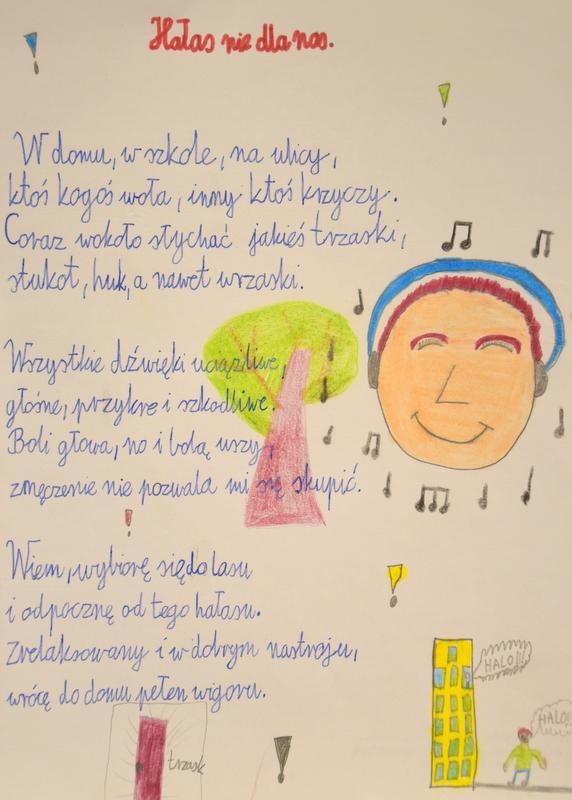 Hałas nie dla nas.
W domu, w szkole, na ulicy,
ktoś kogoś woła, inny ktoś krzyczy.
Coraz wokoło słychać jakieś trzaski,
stukot, huk, a nawet wrzaski.
Wszystkie dźwięki uciążliwe,
głośne, przykre i szkodliwe.
Boli głowa, no i bolą uszy,
zmęczenie nie pozwala mi się skupić.
Wiem, wybiorę się do lasu
i odpocznę od tego hałasu.
Zrelaksowany i w dobrym nastroju,
wrócę do domu pełen wigoru.
HALO!!!
HALO!!
trzask